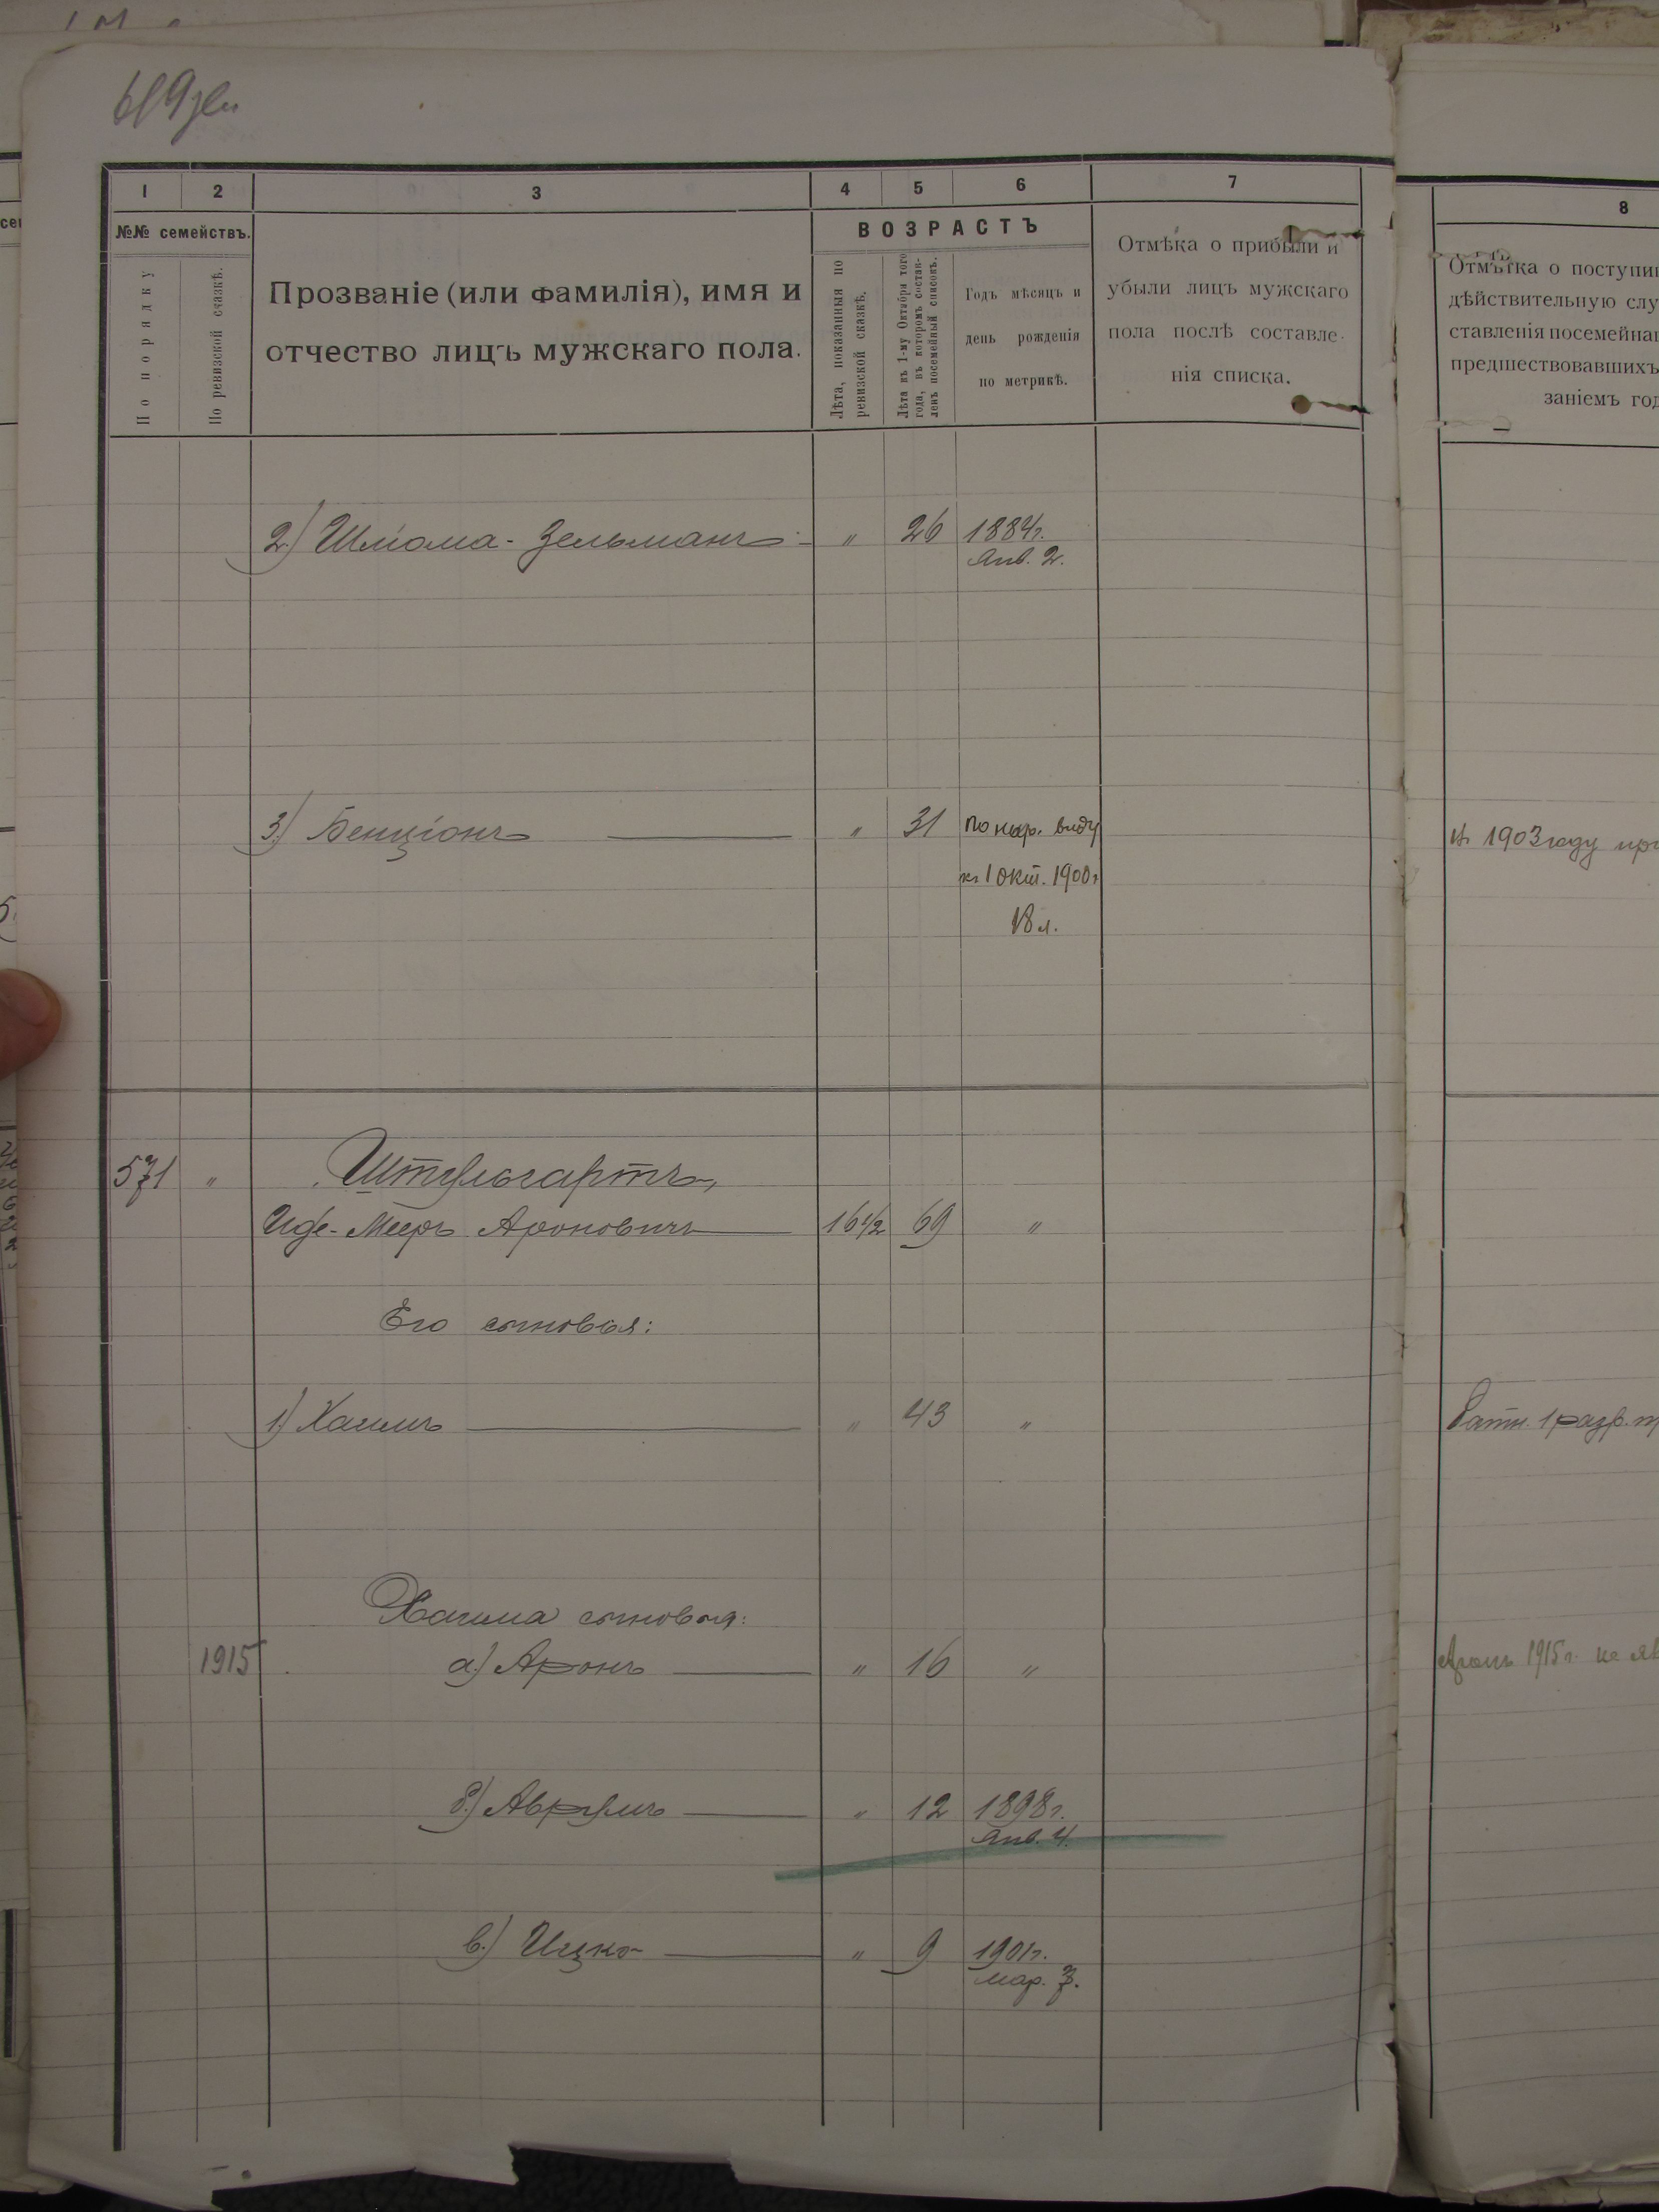 1
2
3
4
5
6
7
8
№№ семействъ.
По порядку
По ревизской сказкѣ.
Прозваніе (или фамилія), имя и
отчество лицъ мужскаго пола.
ВОЗРАСТЪ
Лѣта, показанныя по
ревизской сказкѣ.
Лѣта къ 1-му Октября того
года, въ которомъ состав-
ленъ посемейный списокъ.
Годъ мѣсяцъ и
день рожденія
по метрикѣ.
Отмѣка о прибыли и
убыли лицъ мужскаго
пола послѣ составле-
нія списка.
Отмѣтка о поступи
дѣйствительную слу
ставленія посемейна
предшествовавшихъ
заніемъ год
2) Шлома-Зельманъ " 26 1884г.
Янв. 2.
3) Бенціонъ " 31 по нар. виду
къ 1 окт. 1900г
18 л.
въ 1903 году при
571 " Штульгартъ,
Иде-Мееръ Ароновичъ 16 1/2 69 "
Его сыновья:
1) Хаимъ " 43 "
Ратн. 1 разр.
Хаима сыновья:
1915 а) Аронъ " 16 "
Аронъ 1915г. не яв
б) Аврумъ " 12 1898г.
Янв. 4.
в) Ицко " 9 1901г.
мар. 3.